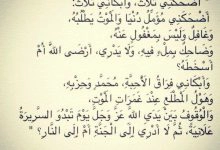 أَضْحَكَتْنِي ثَلَاثٌ، وَأَبْكَانِي ثَلَاثٌ:
أَضْحَكَنِي مُؤَمِّلُ دُنْيَا وَالْمَوْتُ يَطْلُبُهُ،
وَغَافِلٌ وَلَيْسَ بِمَغْفُولٍ عَنْهُ
وَضَاحِكٌ بِمِلْءِ فِيهِ، وَلَا يَدْرِي، أَرْضَى اللهَ أَمْ
أَسْخَطَهُ؟
وَأَبْكَانِي فِرَاقُ الْأَحِبَّةِ، مُحَمَّدٍ وَحِزْبِهِ،
وَهَوْلُ الْمُطَّلَعِ عِنْدَ غَمَرَاتِ الْمَوْتِ،
وَالْوُقُوفُ بَيْنَ يَدَيِ اللهِ عَزَّ وَجَلَّ يَوْمَ تَبْدُو السَّرِيرَةُ
عَلَانِيَةً، ثُمَّ لَا أَدْرِي إِلَى الْجَنَّةِ أَمْ إِلَى النَّارِ؟ "